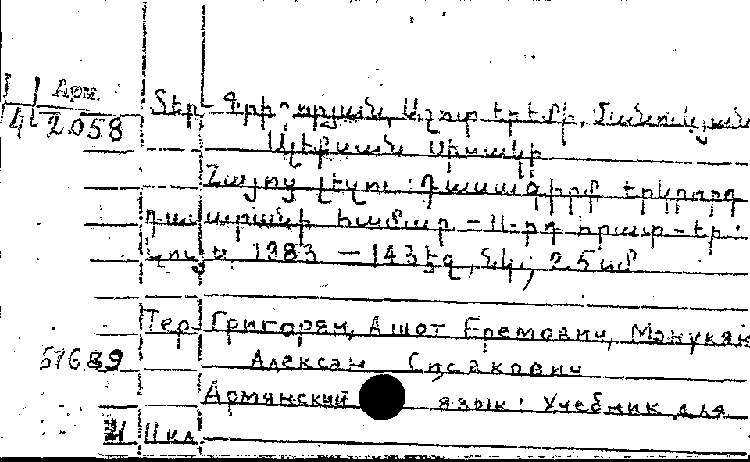 Арм.
42058
Տեր-Գրիգորյան, Աշոտ Երեմի, Մանուկյան
Ալեքսան Սիսակի
Հայոց լեզու: Դասագիրք երկրորդ
դասարանի համար. – 11-րդ հրատ. – Եր.:
Լույս, 1983 – 143 էջ, նկ.; 25 սմ
Тер-Григорян, Ашот Еремович, Манукян
51689 Алексан Сисакович
Армянский язык: Учебник для
II кл.